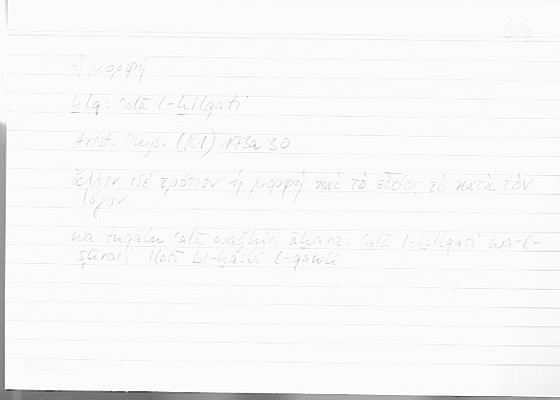 ἡ μορφή
ḫlq: ʿalā l-ḫilqati
Arist. Phys. (II 1) 193a 30
ἄλλον δὲ τρόπον ἡ μορφὴ καὶ τὸ εἶδος τὸ κατὰ τὸν
λόγον
wa-tuqālu ʿalā waǧhin āḫara: ʿalā l-ḫilqati wa-l-
ṣūrati llatī bi-ḥasbi l-qawli